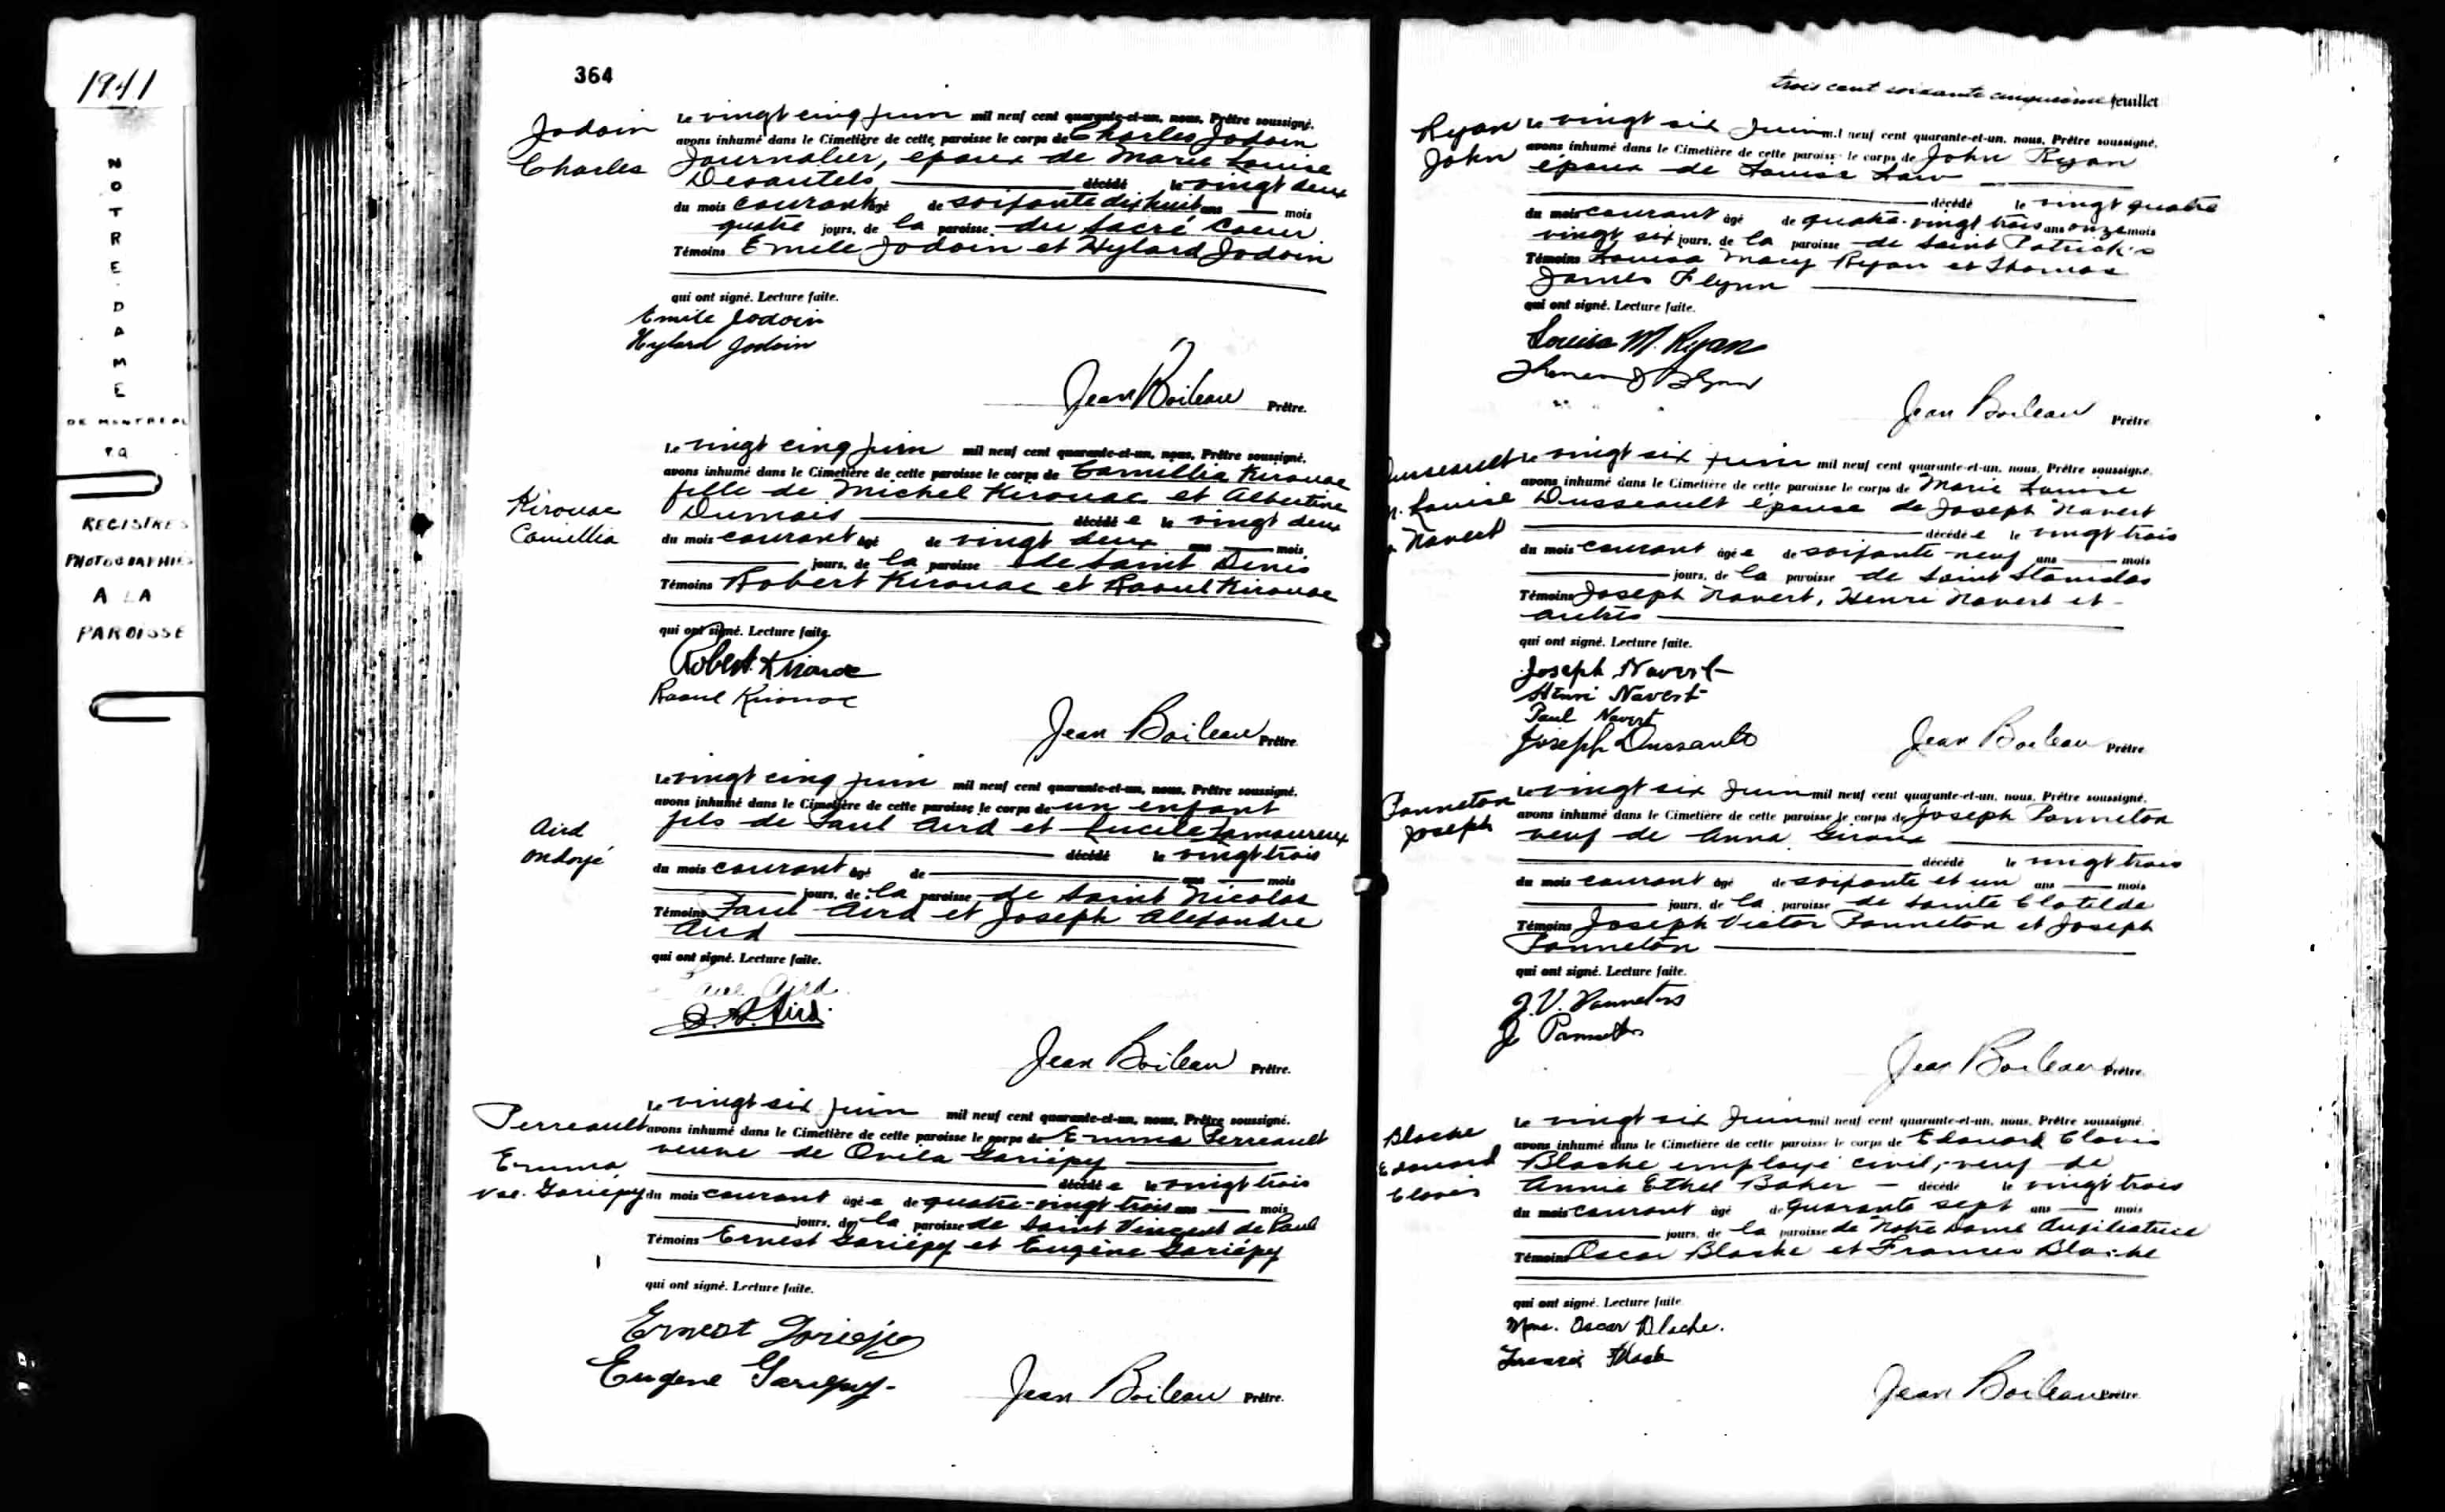 1941
NOTRE DAME
DE MONTREAL
PQ
REGISTRES
PHOTOGRAPHIÉS
A LA
PAROISSE
364
Jodoin
Charles
Le vingt cinq juin mil neuf cent quarante-et-un, nous, Prêtre soussigné,
avons inhumé dans le Cimetière de cette paroisse le corps de Charles Jodoin
Journalier, époux de Marie Louise
Desautels décédé le vingt deux
du mois courant âgé de soixante dix huit ans mois
quatre jours, de la paroisse du Sacré Coeur
Témoins Emile Jodoin et Hylard Jodoin
qui ont signé. Lecture faite.
Emile Jodoin
Hylard Jodoin
Jean Boileau Prêtre.
Kirouac
Camillia
Le vingt cinq juin mil neuf cent quarante-et-un, nous, Prêtre soussigné,
avons inhumé dans le Cimetière de cette paroisse le corps de Camillia Kirouac
fille de Michel Kirouac et Albertine
Dumais décédé e le vingt deux
du mois courant âgé de vingt deux ans mois
jours, de la paroisse de Saint Denis
Témoins Robert Kirouac et Raoul Kirouac
qui ont signé. Lecture faite.
Robert Kirouac
Raoul Kirouac
Jean Boileau Prêtre
Aird
ondoyé
Le vingt cinq juin mil neuf cent quarante-et-un, nous, Prêtre soussigné,
avons inhumé dans le Cimetière de cette paroisse le corps de un enfant
fils de Paul Aird et Lucile Lamoureux
décédé le vingt trois
du mois courant âgé de ans mois
jours, de la paroisse de Saint Nicolas
Témoins Paul Aird et Joseph Alexandre
Aird
qui ont signé. Lecture faite.
Paul Aird
J. A. Aird.
Jean Boileau Prêtre.
Perreault
Emma
Vve. Gariépy
Le vingt six juin mil neuf cent quarante-et-un, nous, Prêtre soussigné,
avons inhumé dans le Cimetière de cette paroisse le corps de Emma Perreault
veuve de Ovila Gariépy
décédé e le vingt trois
du mois courant âgé e de quatre-vingt trois ans mois
jours, de la paroisse de Saint Vincent de Paul
Témoins Ernest Gariépy et Eugène Gariépy
qui ont signé. Lecture faite.
Ernest Gariépy
Eugene Gariepy
Jean Boileau Prêtre.
trois cent soixante cinquième feuillet
Ryan
John
Le vingt six Juin mil neuf cent quarante-et-un, nous, Prêtre soussigné,
avons inhumé dans le Cimetière de cette paroisse le corps de John Ryan
époux de Louise Law
décédé le vingt quatre
du mois courant âgé de quatre-vingt trois ans onze mois
vingt six jours, de la paroisse de Saint Patrick's
Témoins Louisa Mary Ryan et Thomas
James Flynn
qui ont signé. Lecture faite.
Louisa M. Ryan
Thomas J Flynn
Jean Boileau Prêtre
Dusseault
M. Louise
Navert
Le vingt six juin mil neuf cent quarante-et-un, nous, Prêtre soussigné,
avons inhumé dans le Cimetière de cette paroisse le corps de Marie Louise
Dusseault épouse de Joseph Navert
décédé e le vingt trois
du mois courant âgé e de soixante-neuf ans mois
jours, de la paroisse de Saint Stanislas
Témoins Joseph Navert, Henri Navert et
autres
qui ont signé. Lecture faite.
Joseph Navert
Henri Navert
Paul Navert
Joseph Dussault
Jean Boileau Prêtre
Panneton
Joseph
Le vingt six Juin mil neuf cent quarante-et-un, nous, Prêtre soussigné,
avons inhumé dans le Cimetière de cette paroisse le corps de Joseph Panneton
veuf de Anna Giroux
décédé le vingt trois
du mois courant âgé de soixante et un ans mois
jours, de la paroisse de Sainte Clotilde
Témoins Joseph Victor Panneton et Joseph
Panneton
qui ont signé. Lecture faite.
J. V. Panneton
J Panneton
Jean Boileau Prêtre
Blache
Edouard
Clovis
Le vingt six Juin mil neuf cent quarante-et-un, nous, Prêtre soussigné,
avons inhumé dans le Cimetière de cette paroisse le corps de Edouard Clovis
Blache employé civil, veuf de
Annie Ethel Baker décédé le vingt trois
du mois courant âgé de quarante sept ans mois
jours, de la paroisse de Notre Dame Auxiliatrice
Témoins Oscar Blache et Francis Blache
qui ont signé. Lecture faite
Mme. Oscar Blache.
Francis Blache
Jean Boileau Prêtre